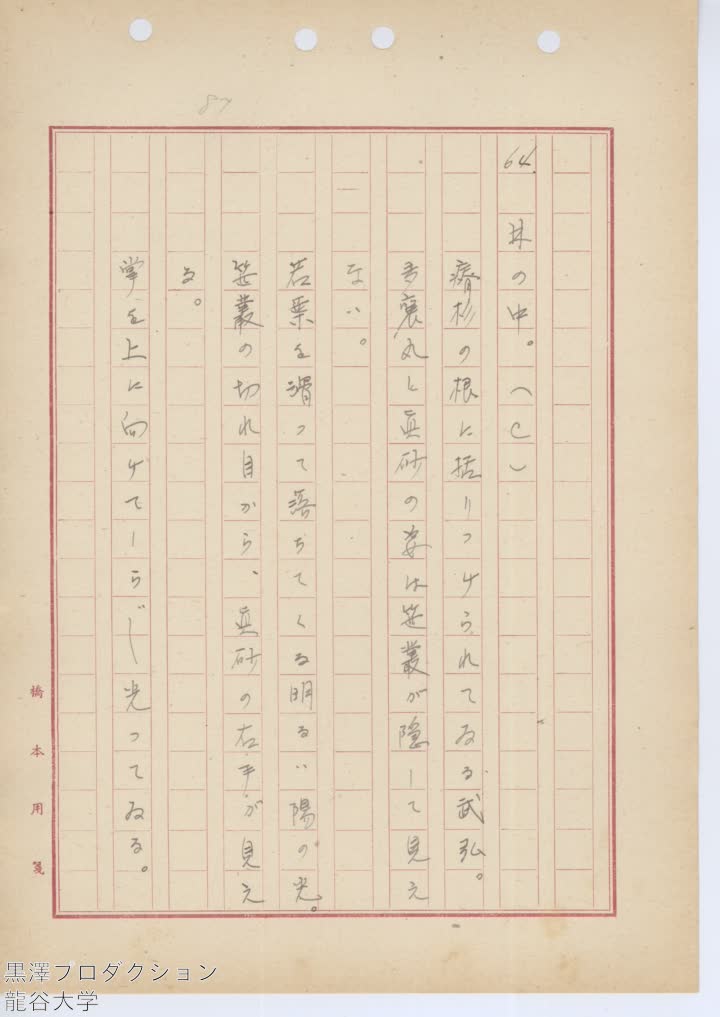 87
64.
林の中。(C)
瘠杉の根に括りつけられてゐる武弘。
多襄丸と眞砂の姿は笹叢が隠して見え
ない。
若葉を滑って落ちてくる明るい陽の光。
笹叢の切れ目から、眞砂の右手が見え
る。
掌を上に向けて 光ってゐる。
橋本用箋
黒澤プロダクション
龍谷大学